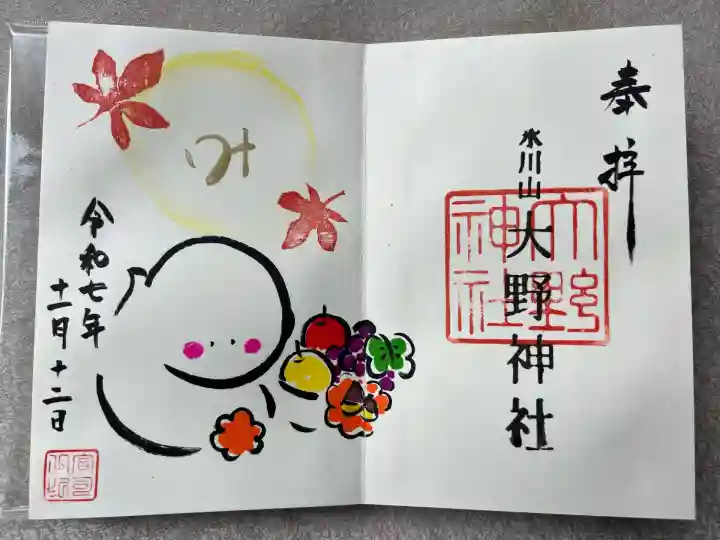 奉拝
氷川山
大野神社
大野
神社
み
令和七年
十一月十二日